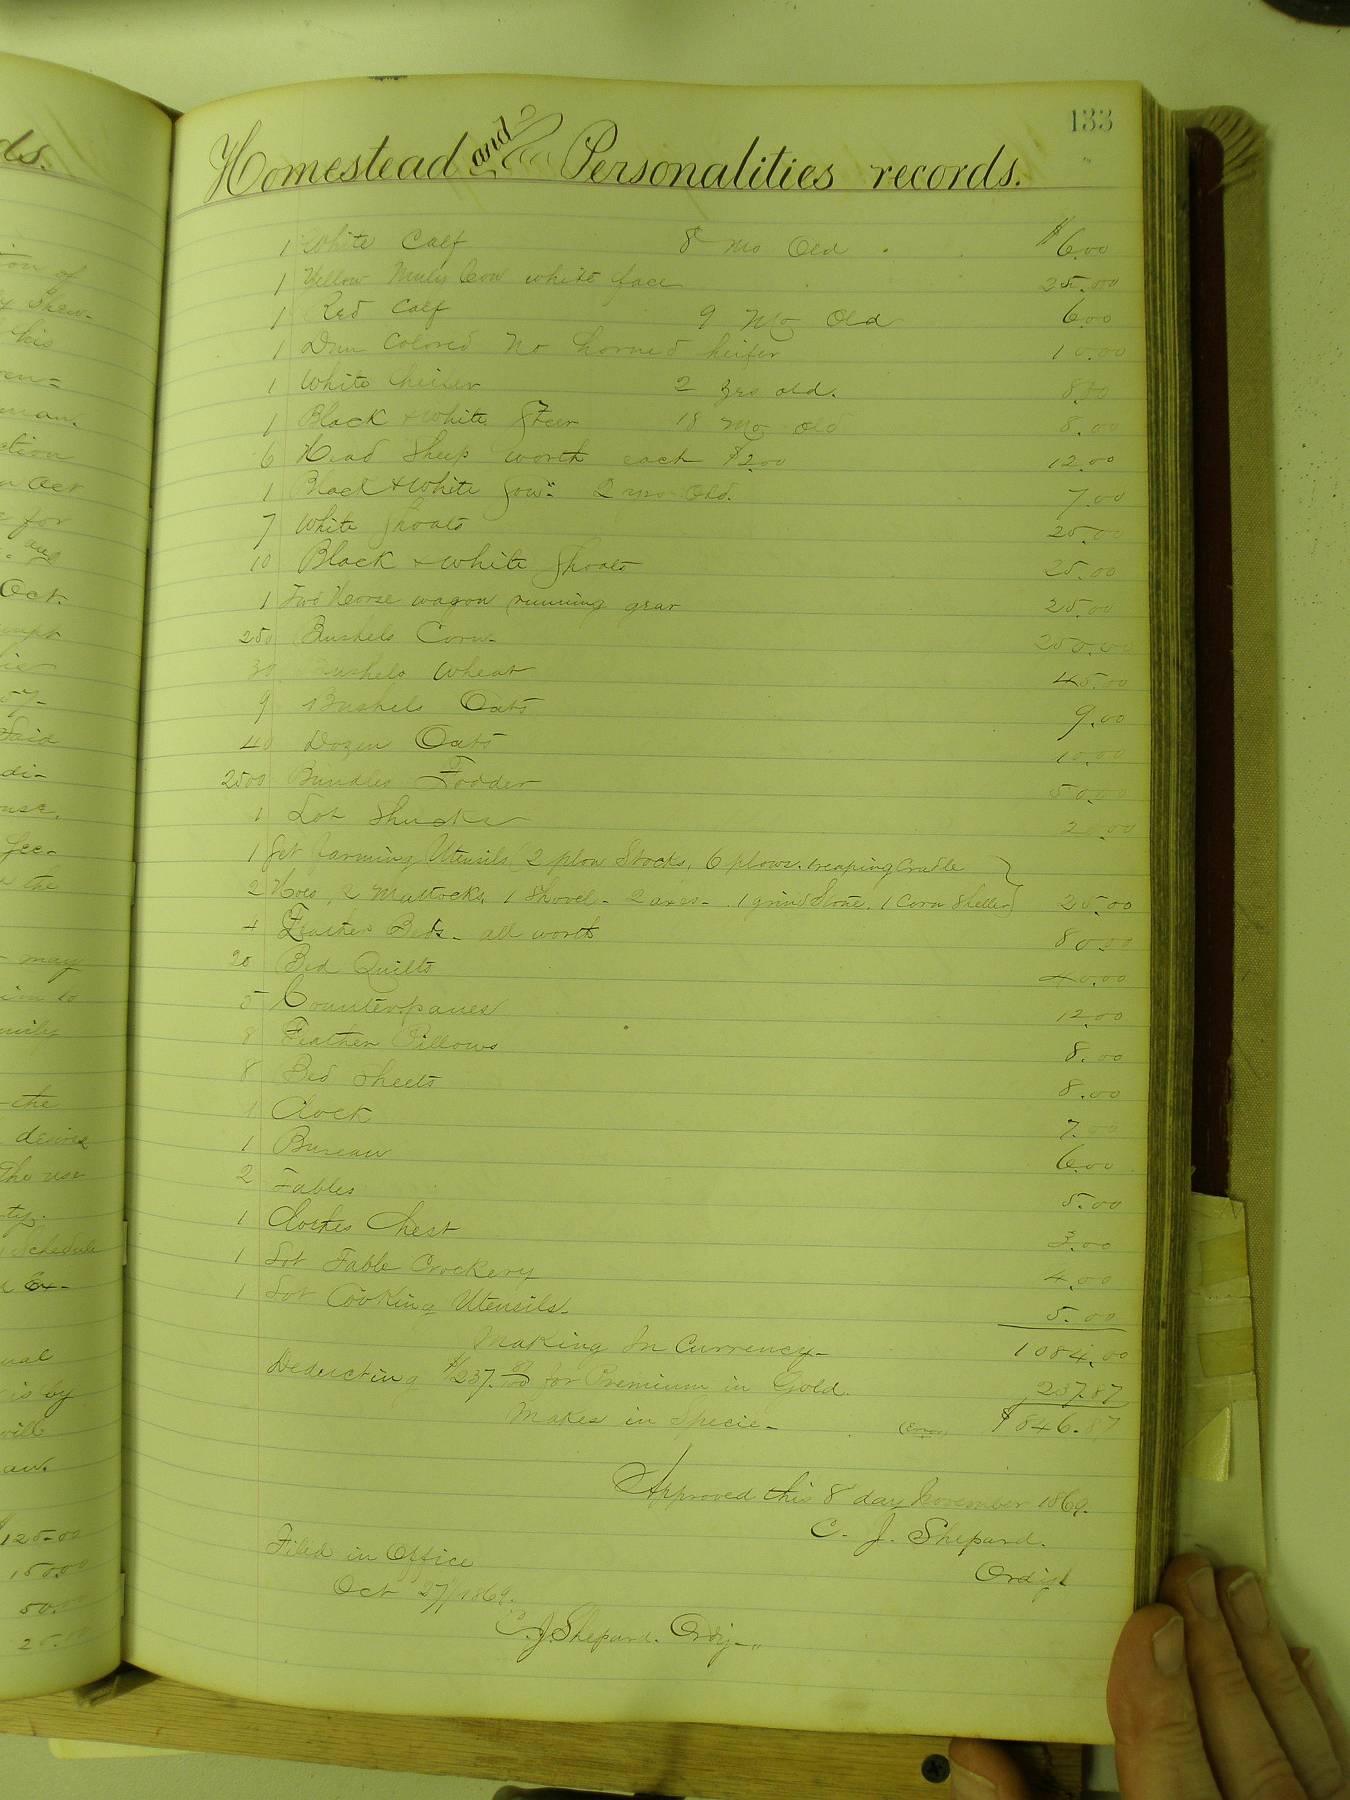 ds.
133
Homestead and Personalities records.
1 White Calf 8 Mo Old . $6.00
1 Yellow Muly Cow white face 25.00
1 Red Calf 9 Mo Old 6.00
1 Dun Colored No horned heifer 10.00
1 White heifer 2 yrs old. 8.00
1 Black & White Steer 18 Mo old 8.00
6 Head Sheep worth each $2.00 12.00
1 Black & White Sow 2 yrs Old. 7.00
7 White Shoats 25.00
10 Black & white Shoats 25.00
1 Two Horse wagon running gear 25.00
250 Bushels Corn 250.00
30 Bushels Wheat 45.00
9 Bushels Oats 9.00
40 Dozen Oats 10.00
2500 Bundles Fodder 50.00
1 Lot Shucks 20.00
1 Set farming Utensils (2 plow Stocks, 6 plows. 1 reaping Cradle
2 Hoes, 2 Mattocks, 1 Shovel - 2 axes - 1 grind Stone. 1 Corn Sheller) 25.00
4 Feather Beds - all worth 80.00
20 Bed Quilts 40.00
5 Counterpanes 12.00
8 Feather Pillows 8.00
8 Bed Sheets 8.00
1 Clock 7.00
1 Bureau 6.00
2 Tables 5.00
1 Clothes Chest 3.00
1 Lot Table Crockery 4.00
1 Lot Cooking Utensils- 5.00
Making In Currency- 1084.00
Deducting $237. 87/100 for Premium in Gold. 237.87
Makes in Specie- $846.87
Approved this 8 day November 1869.
C. J. Shepard.
Ordy
Filed in Office
Oct 27/1869.
C. J. Shepard. Ordy-
tion of
his
man.
Oct.
Said
the
may
the
desires
the use
Schedule
is by
will
$125.00
150.00
50.00
25.00